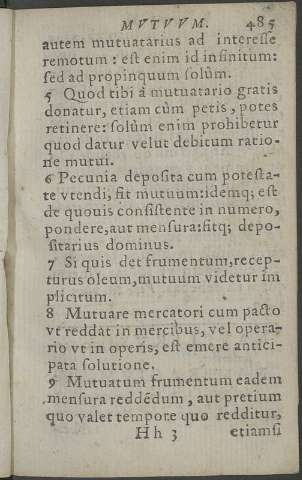 MVTVVM. 485
autem mutuatarius ad interesse
remotum : est enim id infinitum:
sed ad propinquum solùm.
5 Quod tibi â mutuatario gratis
donatur, etiam cùm petis, potes
retinere: solùm enim prohibetur
quod datur velut debitum ratio-
ne mutui.
6 Pecunia deposita cum potesta-
te vtendi, fit mutuum:idemq; est
de quouis consistente in numero,
pondere, aut mensura:fitq; depo-
sitarius dominus.
7 Si quis det frumentum, recep-
turus oleum, mutuum videtur im
plicitum.
8 Mutuare mercatori cum pacto
vt reddat in mercibus, vel opera-
rio vt in operis, est emere antici-
pata solutione.
9 Mutuatum frumentum eadem
mensura reddẽdum, aut pretium
quo valet tempore quo redditur,
Hh 3 etiamsi